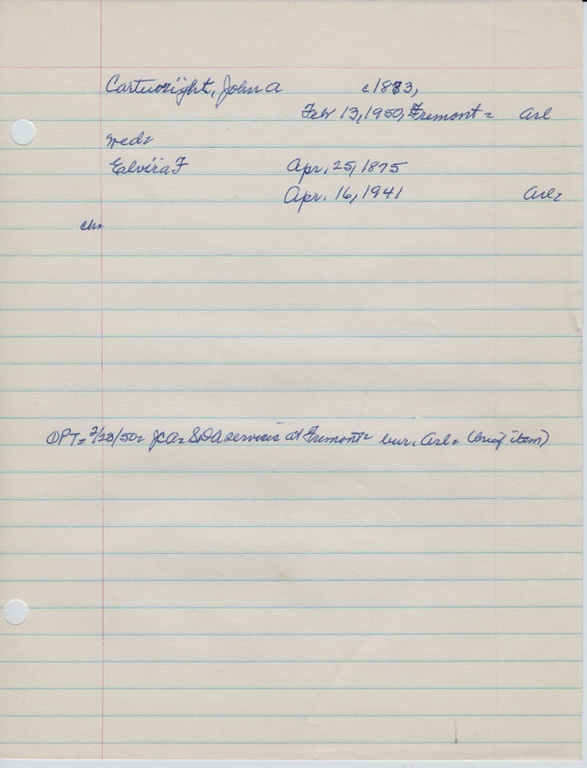 Cartwright, John A c1873,
Feb 13, 1950, Fremont= Arl
wed=
Elvira F Apr. 25, 1875
Apr. 16, 1941 Arl=
ch=
OPT= 2/23/50= JCA= SDA services at Fremont= bur, Arl= (brief item)